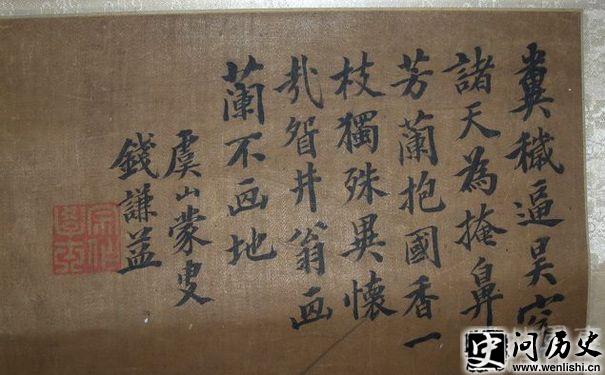 糞穢逼昊
諸天為掩鼻
芳蘭抱國香一
枝獨殊異懷
哉眢井翁画
蘭不画地
虞山蒙叟
錢謙益
问历史
www.wenlishi.cn